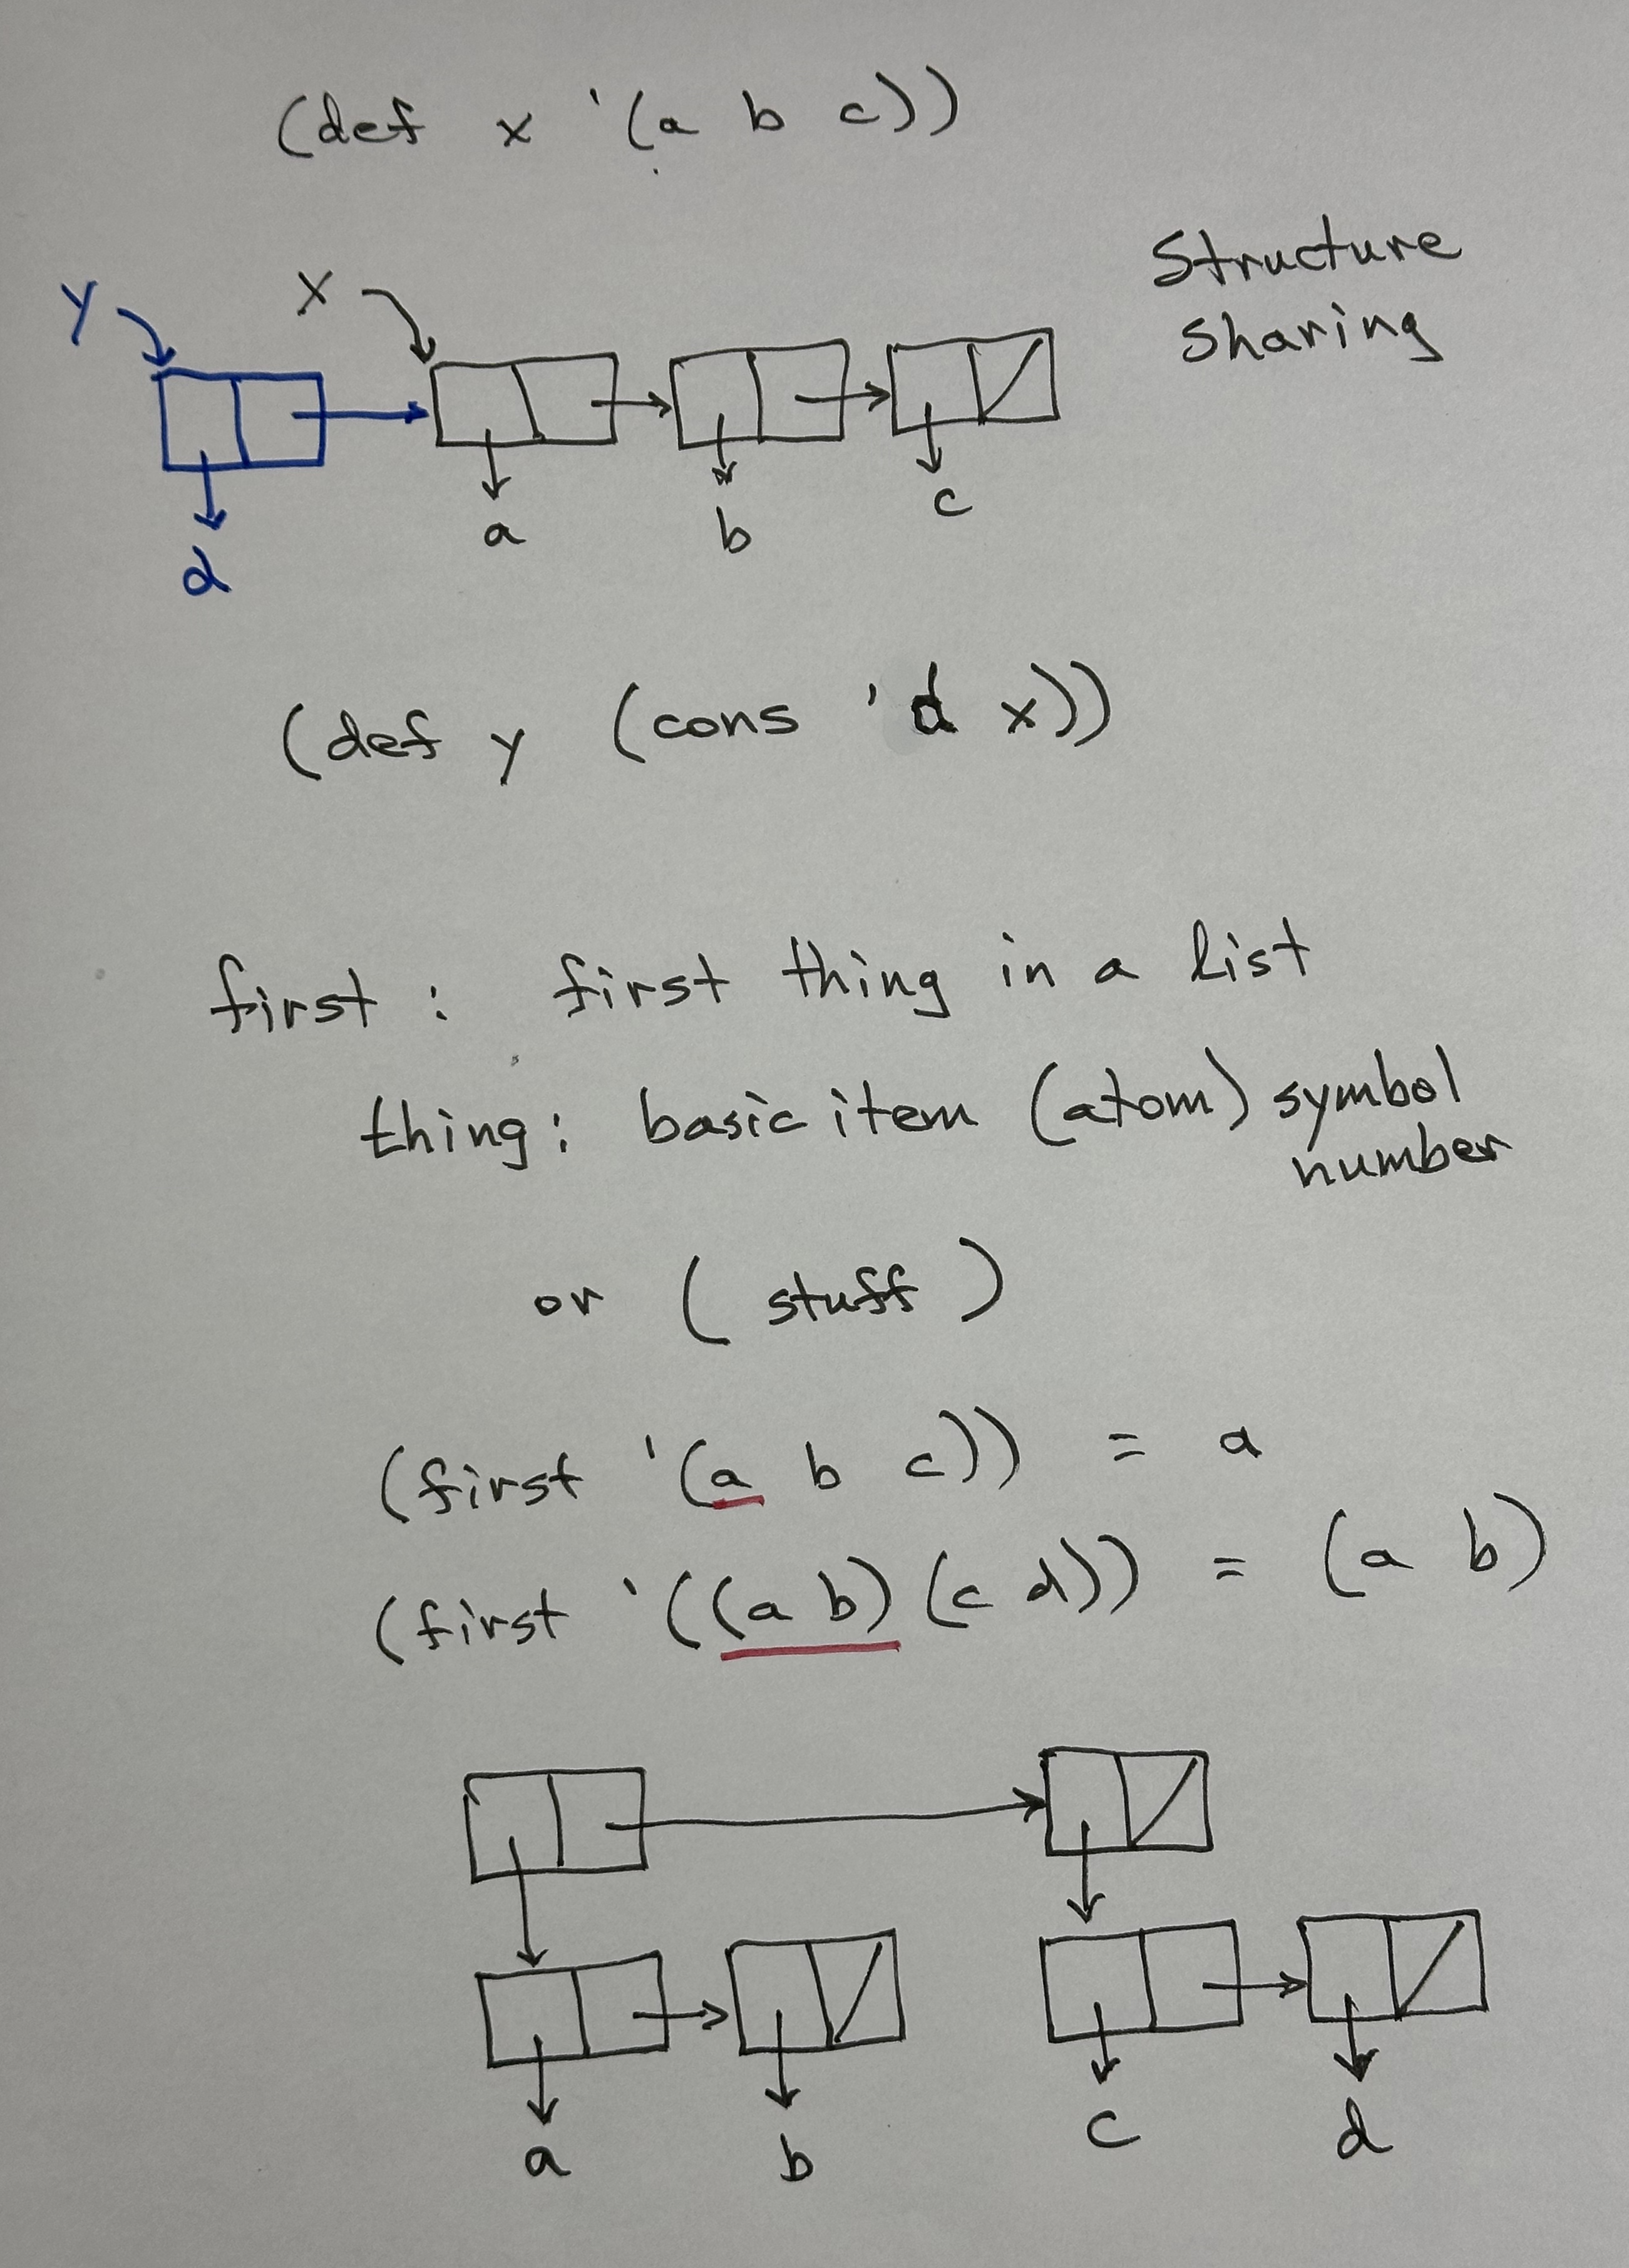 (def x '(a b c))
Structure
sharing
y x
a b c
d
(def y (cons 'd x))
first : first thing in a list
thing: basic item (atom) symbol
number
or ( stuff )
(first '(a b c)) = a
(first '((a b) (c d)) = (a b)
a b c d